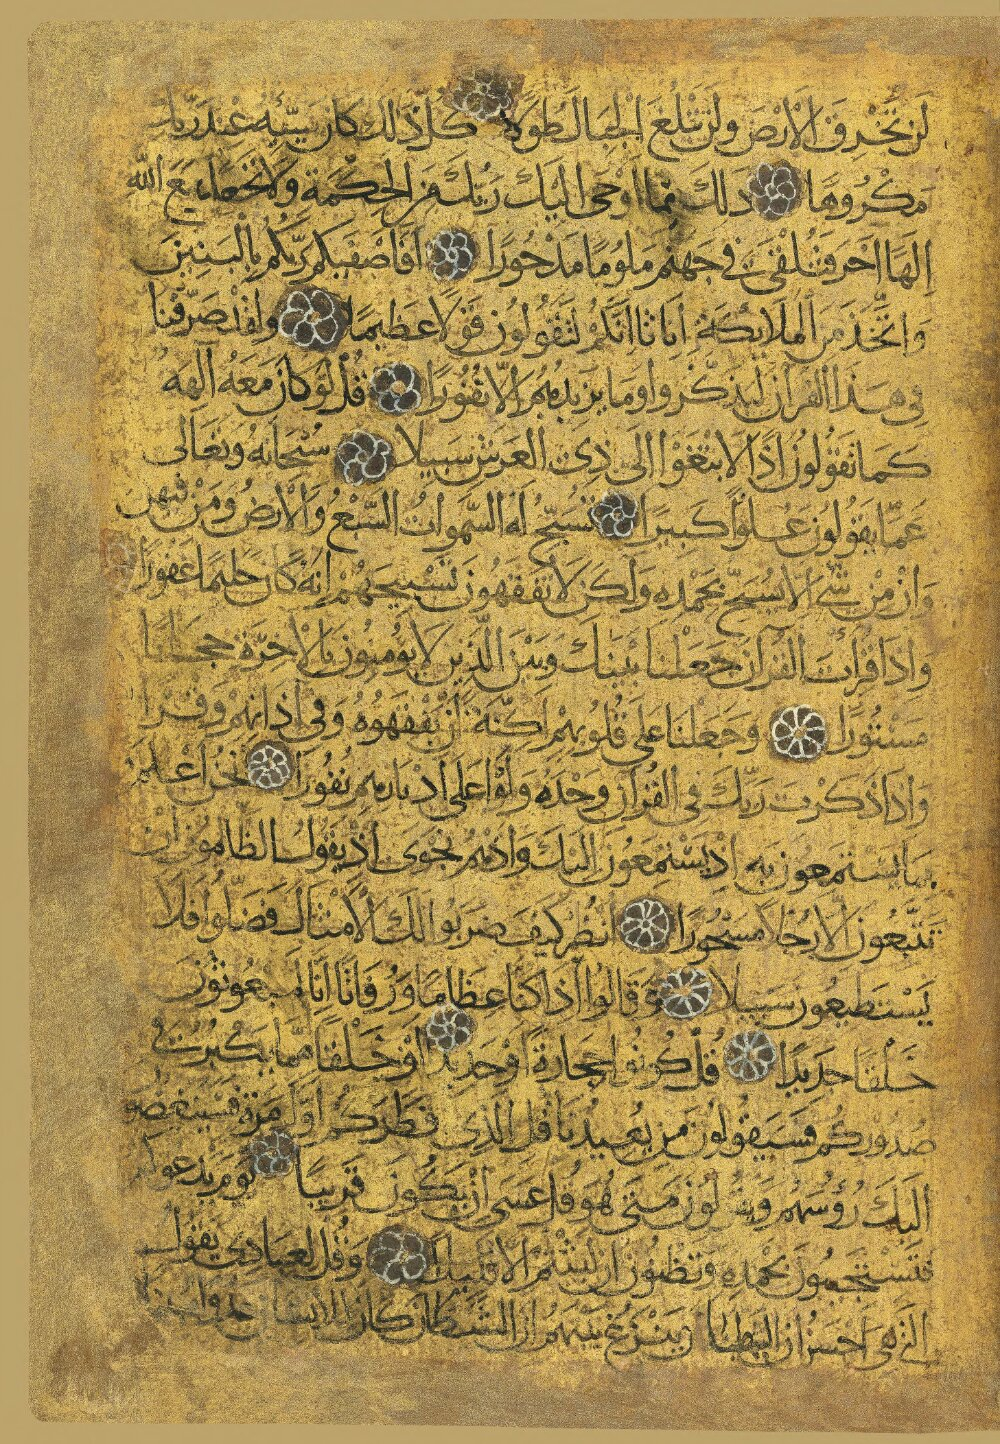 لَنْ تَخْرِقَ الْاَرْضَ وَلَنْ تَبْلُغَ الْجِبَالَ طُولًا كُلُّ ذٰلِكَ كَانَ سَيِّئُهُ عِنْدَ رَبِّكَ
مَكْرُوهًا ذَلِكَ مِمَّا اَوْحَى اِلَيْكَ رَبُّكَ مِنَ الْحِكْمَةِ وَلَا تَجْعَلْ مَعَ اللّٰهِ
اِلٰهًا اٰخَرَ فَتُلْقَى فِي جَهَنَّمَ مَلُومًا مَدْحُورًا اَفَاَصْفٰيكُمْ رَبُّكُمْ بِالْبَنِينَ
وَاتَّخَذَ مِنَ الْمَلَايِكَةِ اِنَاثًا اِنَّكُمْ لَتَقُولُونَ قَوْلًا عَظِيمًا وَلَقَدْ صَرَّفْنَا
فِي هٰذَا الْقُرْاٰنِ لِيَذَّكَّرُوا وَمَا يَزِيدُهُمْ اِلَّا نُفُورًا قُلْ لَوْ كَانَ مَعَهُ اٰلِهَةٌ
كَمَا تَقُولُونَ اِذًا لَابْتَغَوْا اِلَى ذِي الْعَرْشِ سَبِيلًا سُبْحَانَهُ وَتَعَالَى
عَمَّا يَقُولُونَ عُلُوًّا كَبِيرًا تُسَبِّحُ لَهُ السَّمٰوَاتُ السَّبْعُ وَالْاَرْضُ وَمَنْ فِيهِنَّ
وَاِنْ مِنْ شَيْءٍ اِلَّا يُسَبِّحُ بِحَمْدِهِ وَلٰكِنْ لَا تَفْقَهُونَ تَسْبِيحَهُمْ اِنَّهُ كَانَ حَلِيمًا غَفُورًا
وَاِذَا قَرَاْتَ الْقُرْاٰنَ جَعَلْنَا بَيْنَكَ وَبَيْنَ الَّذِينَ لَا يُؤْمِنُونَ بِالْاٰخِرَةِ حِجَابًا
مَسْتُورًا وَجَعَلْنَا عَلَى قُلُوبِهِمْ اَكِنَّةً اَنْ يَفْقَهُوهُ وَفِي اٰذَانِهِمْ وَقْرًا
وَاِذَا ذَكَرْتَ رَبَّكَ فِي الْقُرْاٰنِ وَحْدَهُ وَلَّوْا عَلَى اَدْبَارِهِمْ نُفُورًا نَحْنُ اَعْلَمُ
بِمَا يَسْتَمِعُونَ بِهِ اِذْ يَسْتَمِعُونَ اِلَيْكَ وَاِذْ هُمْ نَجْوَى اِذْ يَقُولُ الظَّالِمُونَ اِنْ
تَتَّبِعُونَ اِلَّا رَجُلًا مَسْحُورًا اُنْظُرْ كَيْفَ ضَرَبُوا لَكَ الْاَمْثَالَ فَضَلُّوا فَلَا
يَسْتَطِيعُونَ سَبِيلًا وَقَالُوا اَاِذَا كُنَّا عِظَامًا وَرُفَاتًا اَاِنَّا لَمَبْعُوثُونَ
خَلْقًا جَدِيدًا قُلْ كُونُوا حِجَارَةً اَوْ حَدِيدًا اَوْ خَلْقًا مِمَّا يَكْبُرُ فِي
صُدُورِكُمْ فَسَيَقُولُونَ مَنْ يُعِيدُنَا قُلِ الَّذِي فَطَرَكُمْ اَوَّلَ مَرَّةٍ فَسَيُنْغِضُونَ
اِلَيْكَ رُؤُسَهُمْ وَيَقُولُونَ مَتَى هُوَ قُلْ عَسَى اَنْ يَكُونَ قَرِيبًا يَوْمَ يَدْعُوكُمْ
فَتَسْتَجِيبُونَ بِحَمْدِهِ وَتَظُنُّونَ اِنْ لَبِثْتُمْ اِلَّا قَلِيلًا وَقُلْ لِعِبَادِي يَقُولُوا
الَّتِي هِيَ اَحْسَنُ اِنَّ الشَّيْطَانَ يَنْزَغُ بَيْنَهُمْ اِنَّ الشَّيْطَانَ كَانَ لِلْاِنْسَانِ عَدُوًّا